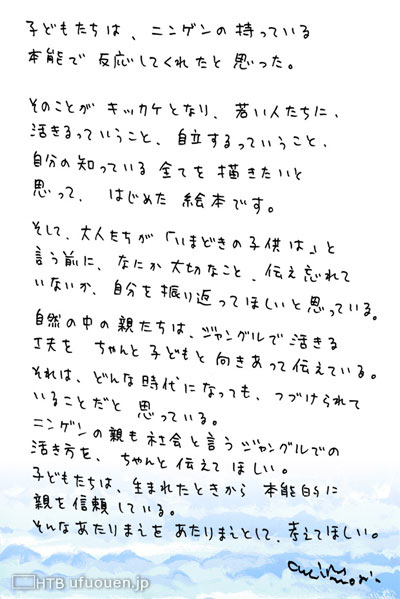 子どもたちは、ニンゲンの持っている
本能で反応してくれたと思った。
そのことがキッカケとなり、若い人たちに、
活きるっていうこと、自立するっていうこと、
自分の知っている全てを描きたいと
思って、はじめた絵本です。
そして、大人たちが「いまどきの子供は」と
言う前に、なにか大切なこと、伝え忘れて
いないか、自分を振り返ってほしいと思っている。
自然の中の親たちは、ジャングルで活きる
工夫をちゃんと子どもと向きあって伝えている。
それは、どんな時代になっても、つづけられて
いることだと思っている。
ニンゲンの親も社会と言うジャングルでの
活き方を、ちゃんと伝えてほしい。
子どもたちは、生まれたときから本能的に
親を信頼している。
そんなあたりまえをあたりまえとして、考えてほしい。
HTB ufuouen.jp